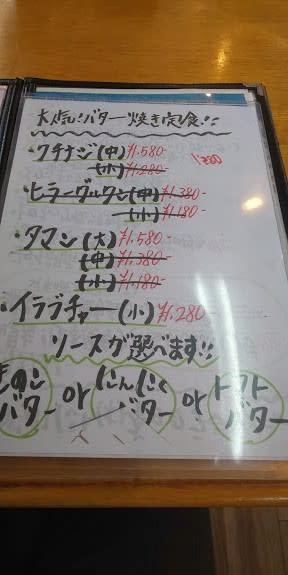 大人気!バター焼き定食!!
・クチナジ(中)¥1.580-
(小)¥1.280-
・ヒラーグルクン(中)¥1.380-
(小)¥1.180-
・タマン(大)¥1.580-
(中)¥1.380-
(小)¥1.180-
・イラブチャー(小)¥1.280-
ソースが選べます!!
バター or にんにくバター or トマトバター